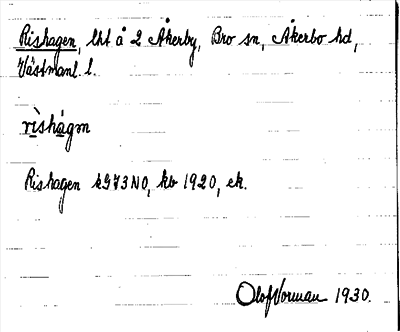 Rishagen, lht å 2 Åkerby, Bro sn, Åkerbo hd,
Västmanl. l.
rìshágɘn
Rishagen kG73NO, kb 1920, ek.
Olof Vorman 1930.